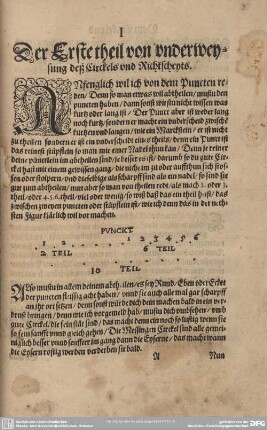 I
Der Erste theil von underwey-
sung deß Circkels und Richtscheyts.
ANfenglich wil ich von dem Puncten re-
den / Denn so man etwas wil abtheilen / mustu den
puncten haben / dann sonst wirstu nicht wissen was
kurtz oder lang ist / Der Punct aber ist weder lang
noch kurtz / sonder er macht ein underscheid zwischen
kurtzen und langen / wie ein Marckstein / er ist nicht
zu theilen / sonder er ist ein
das reinest stüpfflein so man mit einer Nadel
deine pünctlein im abtheilen sind / je besser es ist / darumb so du gute Circ-
ckel hast mit einem gewissen gang / die nicht im zu oder auffthun sich stos-
sen oder
gut zum abtheilen / nun aber so man von theilen redt / als nach 2. oder 3.
theil, oder 4. 5. 6. theil / viel oder wenig / so wiß daß das ein theil heist / das
zwischen zweyen puncten oder stüpfflein ist / wie ich denn das hie in der nech-
sten Figur klerlich wil vor machen.
PUNCKT
1 2 2 3 4 5 6
2 TEIL 6 TEIL
10 TEIL
ALso mustu in allem deinem abtheilen / es sey Rund / Eben oder Eckete
der puncten fleissig acht haben / unnd sie auch alle mal gar scharpff
an ihr ort setzen / denn sonst würde dich dein machen bald in ein ver-
druß bringen / denn wie ich vorgemeld hab / mustu dich nicht seumen / und
gute Circkel / die
so sein sanfft unnd gleich gehen / Die Messingen Circkel sind alle gemei-
niglich besser unnd senffter im gang dann die Eyserne / das macht wann
die Eysern rostig werden verderben sie bald.
A Nun